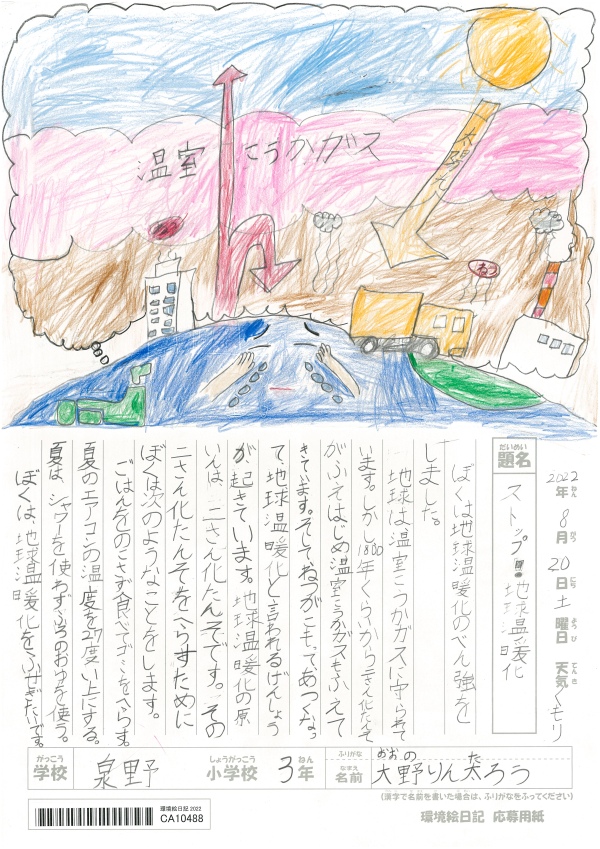 温室こうかガス
太陽光
ねつ
2022年ねん 8月がつ 20日にち 土曜日ようび 天気てんき くもり
だいめい
題名
ストップ!!地球温暖化
ぼくは地球温暖化のべん強を
しました。
地球は温室こうかガスに守られて
います。しかし1800年くらいから二さん化たんそ
がふえはじめ温室こうかガスもふえて
きています。そしてねつがこもってあつくなっ
て地球温暖化と言われるげんしょう
が起きています。地球温暖化の原
いんは、二さん化たんそです。その
二さん化たんそをへらすために
ぼくは次のようなことをします。
ごはんをのこさず食べてゴミをへらす。
夏のエアコンの温度を27度い上にする。
夏は、シャワーを使わずふろのおゆを使う。
ぼくは、地球温暖化をふせぎたいです。
がっこう
学校
泉野
しょうがっこう
小学校
3年ねん
ふりがな
なまえ
名前
おおの た
大野りん太ろう
(漢字で名前を書いた場合は、ふりがなをふってください)
環境絵日記 2022
CA10488
環境絵日記 応募用紙